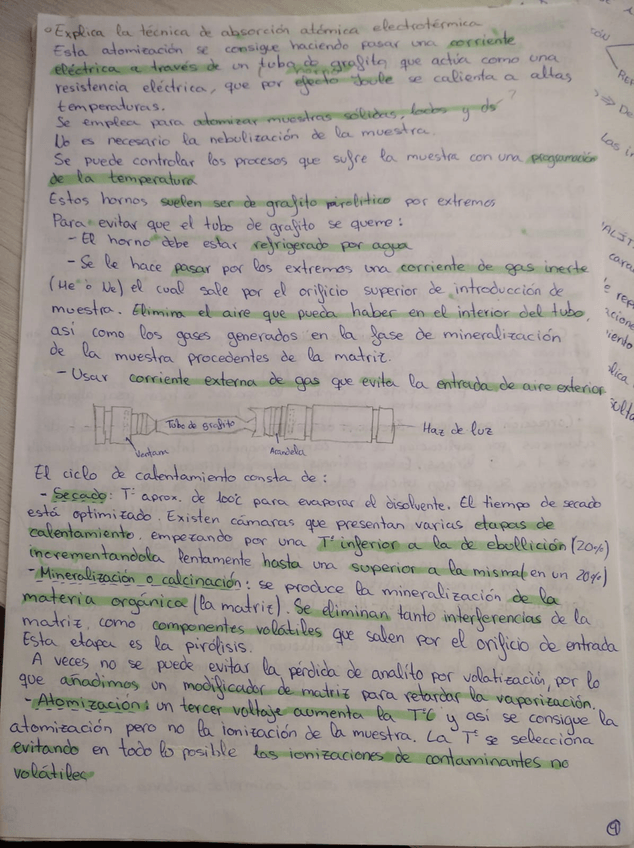 ° Explica la técnica de absorción atómica electrotérmica
Esta atomización se consigue haciendo pasar una corriente
eléctrica a través de un tubo de grafito, que actúa como una
resistencia eléctrica, que por efecto Joule se calienta a altas
temperaturas.
Se emplea para atomizar muestras sólidas, lodos y ds ?
No es necesario la nebulización de la muestra.
Se puede controlar los procesos que sufre la muestra con una programación
de la temperatura
Estos hornos suelen ser de grafito pirolítico por extremos
Para evitar que el tubo de grafito se queme:
- El horno debe estar refrigerado por agua
- Se le hace pasar por los extremos una corriente de gas inerte
(He o Ne) el cual sale por el orificio superior de introducción de
muestra. Elimina el aire que pueda haber en el interior del tubo,
así como los gases generados en la fase de mineralización
de la muestra procedentes de la matriz.
- Usar corriente externa de gas que evita la entrada de aire exterior
Tubo de grafito
Haz de luz
Ventana
Arandela
El ciclo de calentamiento consta de:
- Secado: Tª aprox. de 100ºC para evaporar el disolvente. El tiempo de secado
está optimizado. Existen cámaras que presentan varias etapas de
calentamiento, empezando por una Tª inferior a la de ebollición (20%)
incrementandola lentamente hasta una superior a la misma (en un 20%)
- Mineralización o calcinación: se produce la mineralización de la
materia orgánica (la matriz). Se eliminan tanto interferencias de la
matriz, como componentes volátiles que salen por el orificio de entrada
Esta etapa es la pirólisis.
A veces no se puede evitar la pérdida de analito por volatización, por lo
que añadimos un modificador de matriz para retardar la vaporización.
- Atomización: un tercer voltaje aumenta la TªC y así se consigue la
atomización pero no la ionización de la muestra. La Tª se selecciona
evitando en todo lo posible las ionizaciones de contaminantes no
volátiles
9